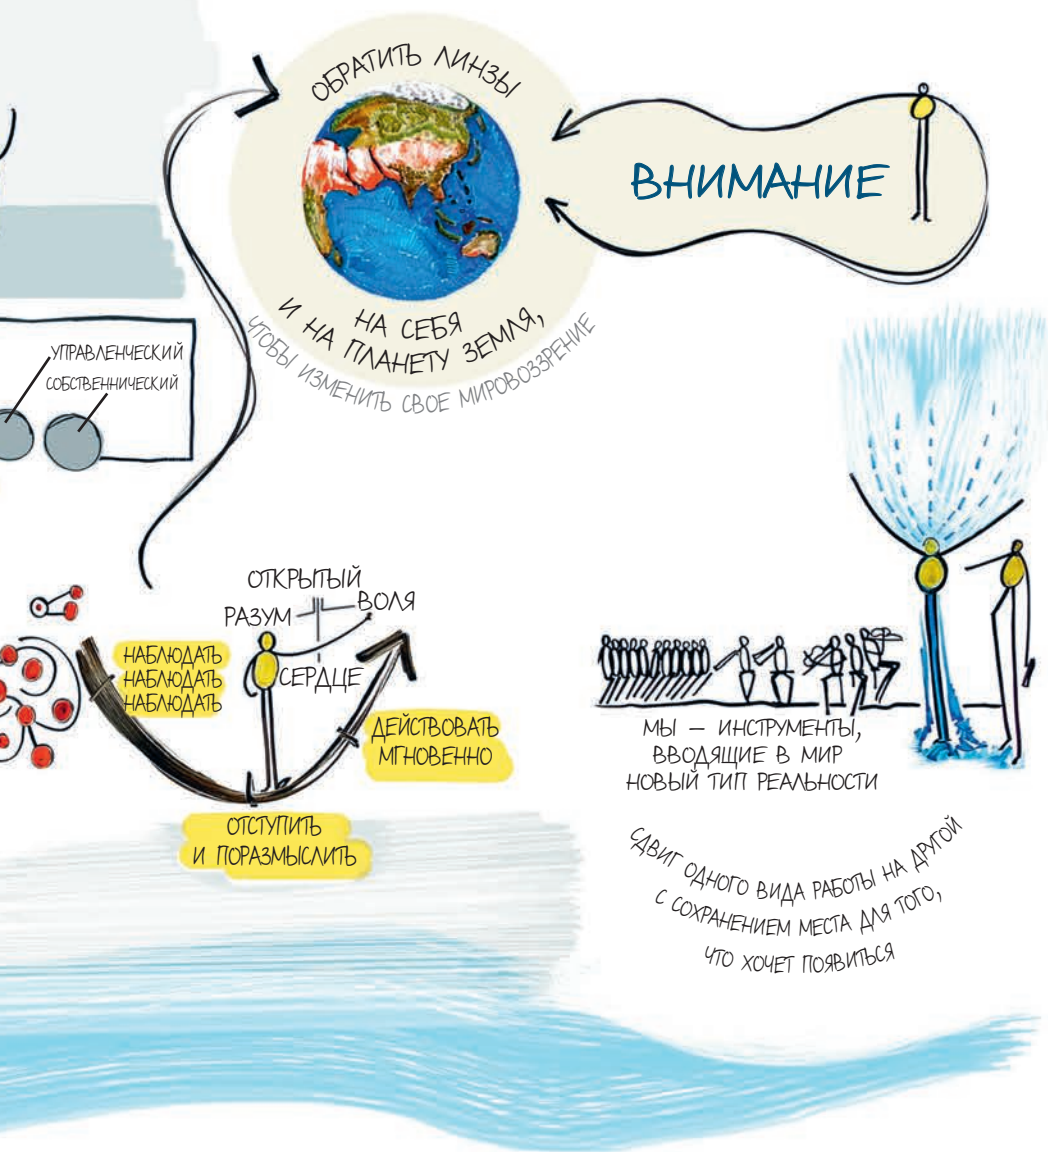 ОБРАТИТЬ ЛИНЗЫ
НА СЕБЯ
И НА ПЛАНЕТУ ЗЕМЛЯ,
ЧТОБЫ ИЗМЕНИТЬ СВОЕ МИРОВОЗЗРЕНИЕ
ВНИМАНИЕ
УПРАВЛЕНЧЕСКИЙ
СОБСТВЕННИЧЕСКИЙ
ОТКРЫТЫЙ
РАЗУМ
ВОЛЯ
СЕРДЦЕ
НАБЛЮДАТЬ
НАБЛЮДАТЬ
НАБЛЮДАТЬ
ДЕЙСТВОВАТЬ
МГНОВЕННО
ОТСТУПИТЬ
И ПОРАЗМЫСЛИТЬ
МЫ – ИНСТРУМЕНТЫ,
ВВОДЯЩИЕ В МИР
НОВЫЙ ТИП РЕАЛЬНОСТИ
СДВИГ ОДНОГО ВИДА РАБОТЫ НА ДРУГОЙ
С СОХРАНЕНИЕМ МЕСТА ДЛЯ ТОГО,
ЧТО ХОЧЕТ ПОЯВИТЬСЯ